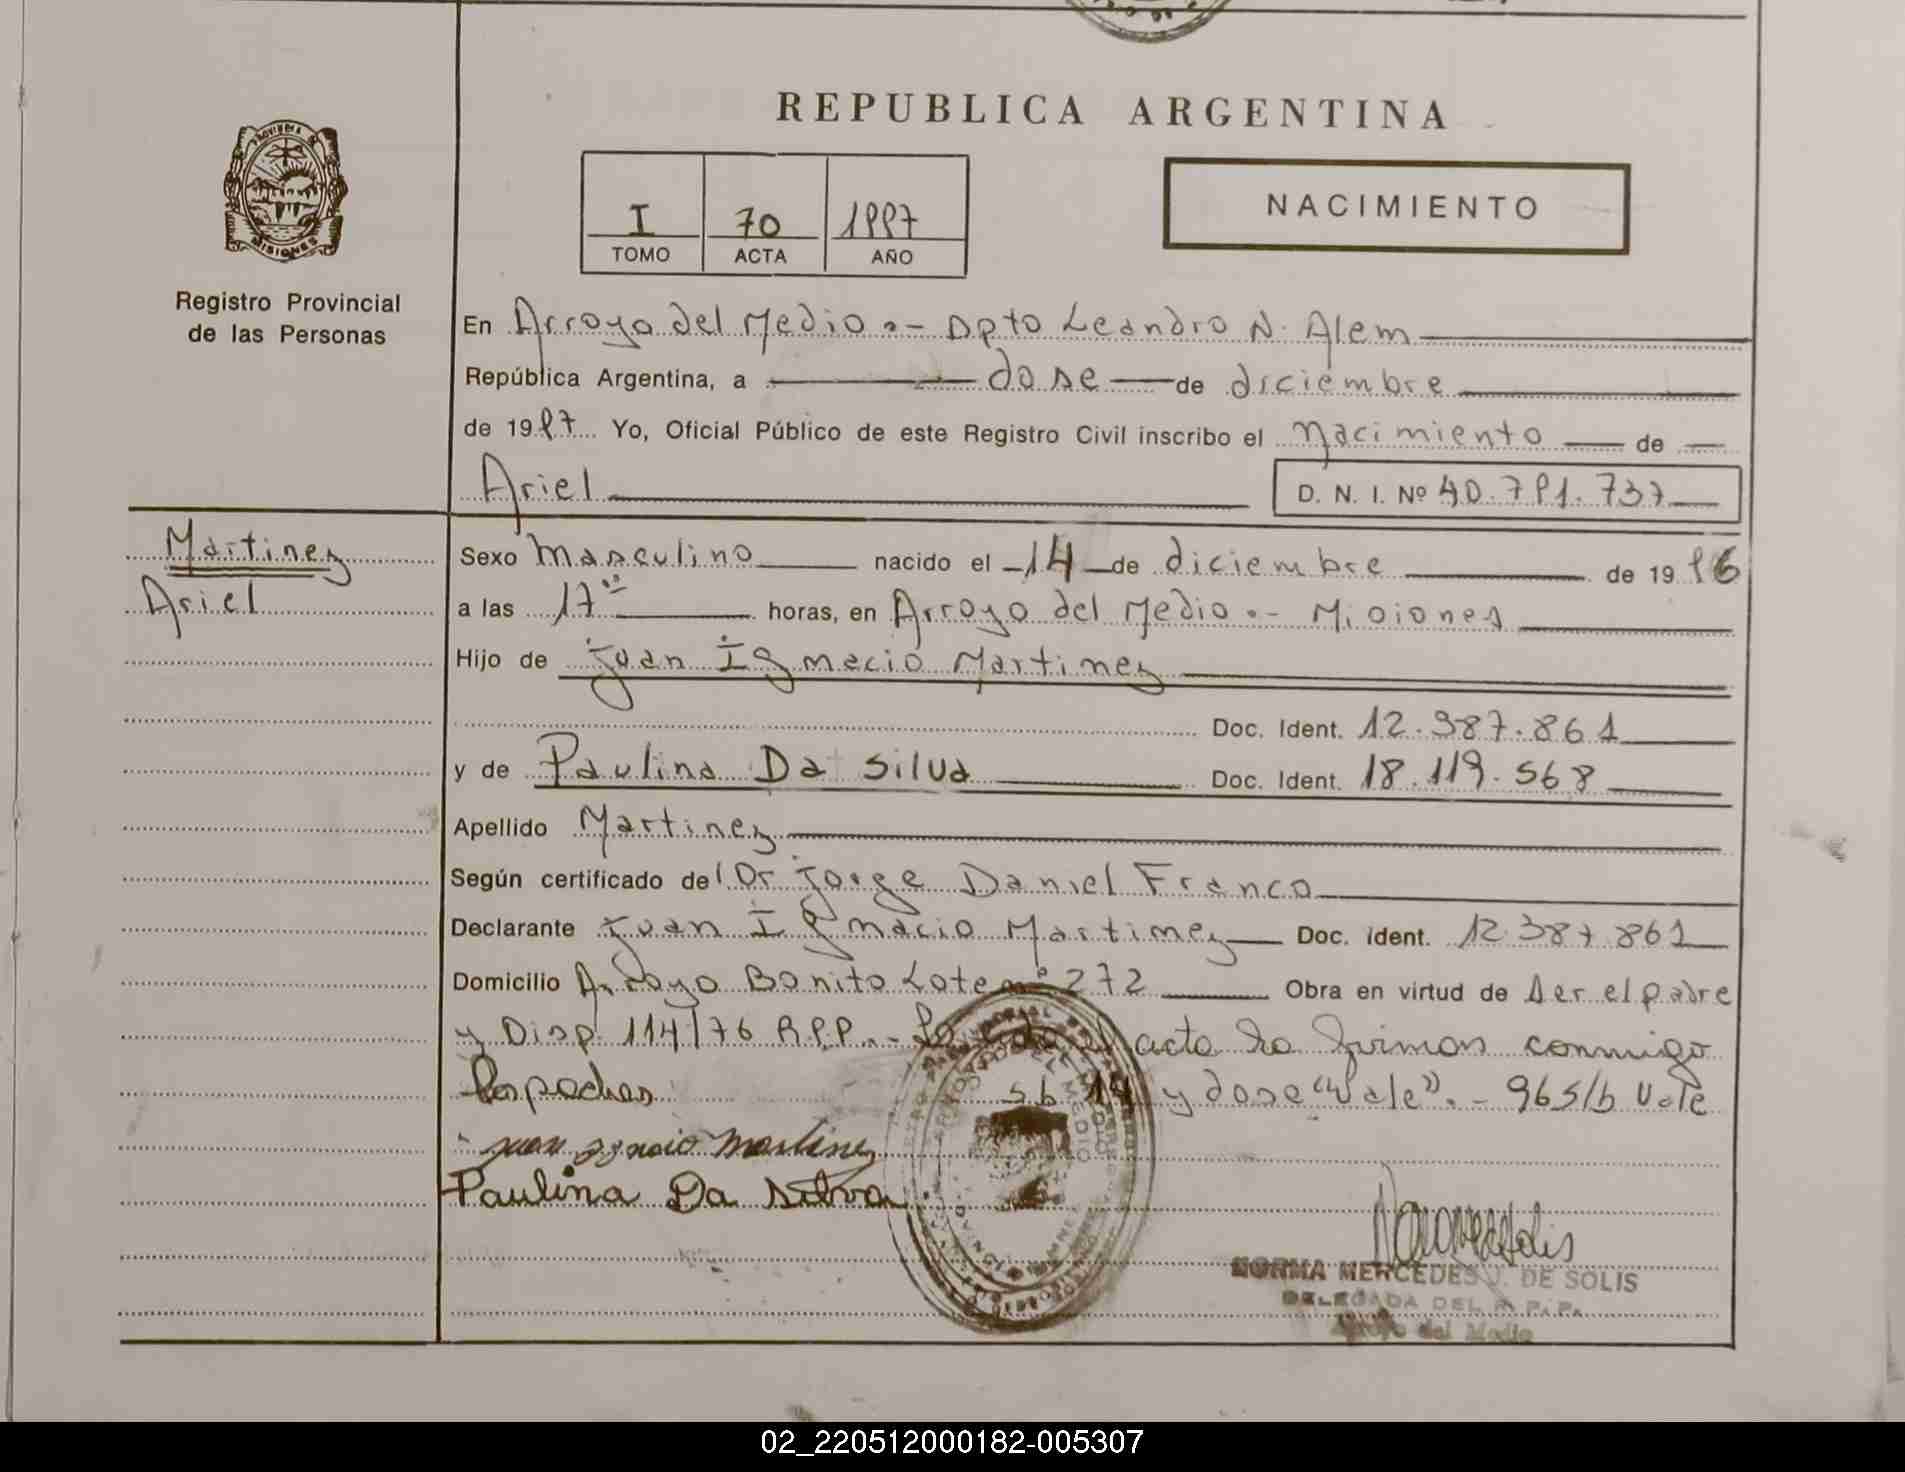 REPUBLICA ARGENTINA
PROVINCIA DE
MISIONES
Registro Provincial
de las Personas
I 70 1997
TOMO ACTA AÑO
NACIMIENTO
En Arroyo del Medio.- Dpto Leandro N. Alem
República Argentina, a dose de diciembre
de 1997 Yo, Oficial Público de este Registro Civil inscribo el Nacimiento de
Ariel D. N. I. Nº 40.791.737
Martinez
Ariel
Sexo Masculino nacido el 14 de diciembre de 1996
a las 17ºº horas, en Arroyo del Medio.- Misiones
Hijo de Juan Ignacio Martinez
Doc. Ident. 12.387.861
y de Paulina Da Silva Doc. Ident. 18.119.568
Apellido Martinez
Según certificado del Dr Jorge Daniel Franco
Declarante Juan Ignacio Martinez Doc. Ident. 12.387.861
Domicilio Arroyo Bonito Lote nº 272 Obra en virtud de ser el padre
y Disp. 114/76 R.P.P.- el acta la firman conmigo
los padres s/b 14 y dose "Vale".- 96 s/b Vale
Juan Ignacio Martinez
Paulina Da Silva
NORMA MERCEDES V. DE SOLIS
DELEGADA DEL R. P. P.
Arroyo del Medio
02_220512000182-005307